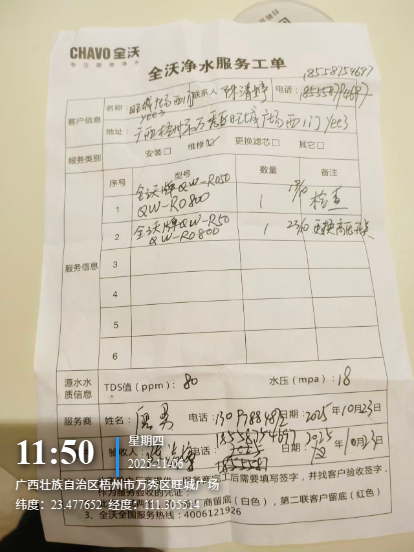 CHAVO 全沃
全沃净水服务工单
18558754697
客户信息
名称: 旺城广场西门 yee3
联系人
电话: 18558754697
地址: 广西梧州市万秀区旺城广场西门yee3
服务类别
安装□ 维修☑ 更换滤芯□ 其它□
服务信息
序号 型号 数量 备注
1 全沃牌QW-R050 QW-R0800 1 19/10 检查
2 全沃牌QW-R50 QW-R0800 1 23/10
3
4
5
6
源水水质信息
TDS值 (ppm): 80 水压 (mpa): 18
服务商 姓名: 电话: 日期: 2025年10月23日
验收人: 18558754697 2025年10月23日
工后需要填写签字，并找客户验收签字，
作为服务验收的凭证
商留底（白色），第二联客户留底（红色）
3、全沃全国服务热线: 4006121926
11:50
星期四
2025-11-06
广西壮族自治区梧州市万秀区旺城广场
纬度: 23.477652 经度: 111.305514